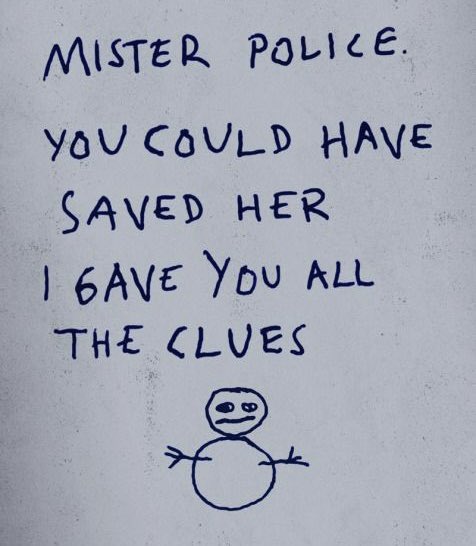 MISTER POLICE.
YOU COULD HAVE
SAVED HER
I GAVE YOU ALL
THE CLUES